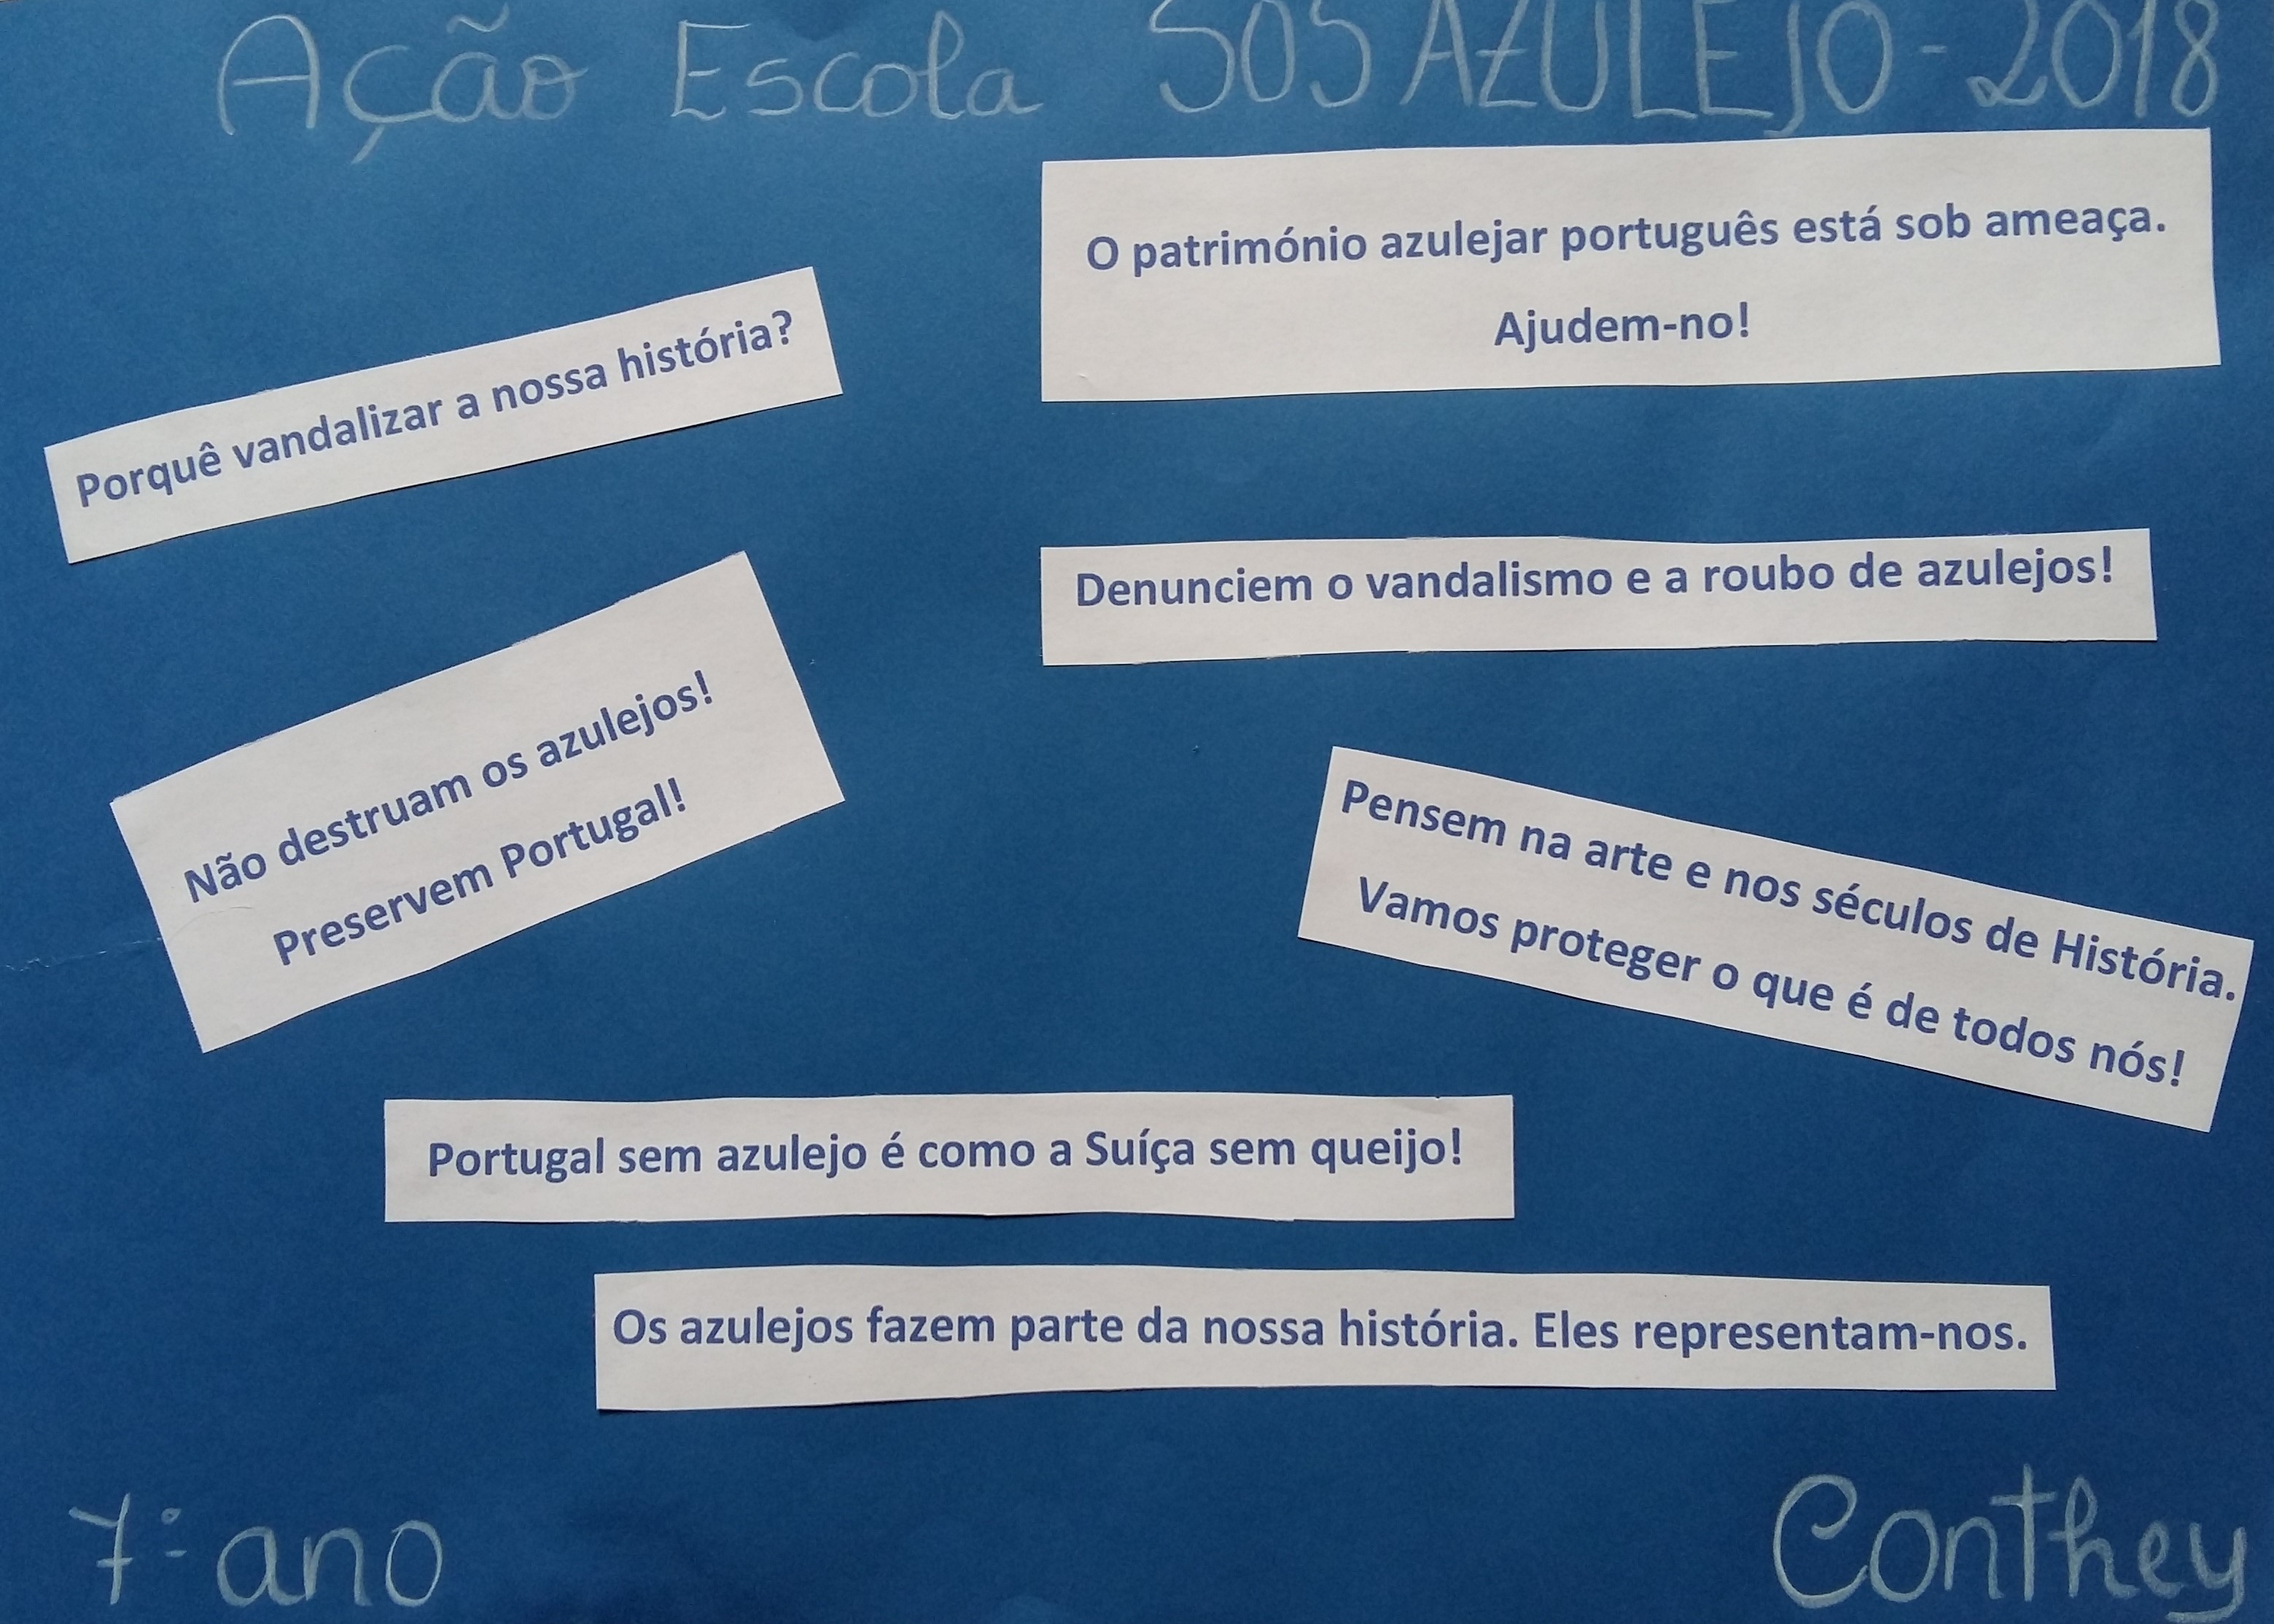 Ação Escola SOS AZULEJO - 2018
O património azulejar português está sob ameaça.
Ajudem-no!
Porquê vandalizar a nossa história?
Denunciem o vandalismo e a roubo de azulejos!
Não destruam os azulejos!
Preservem Portugal!
Pensem na arte e nos séculos de História.
Vamos proteger o que é de todos nós!
Portugal sem azulejo é como a Suíça sem queijo!
Os azulejos fazem parte da nossa história. Eles representam-nos.
7º ano
Conthey